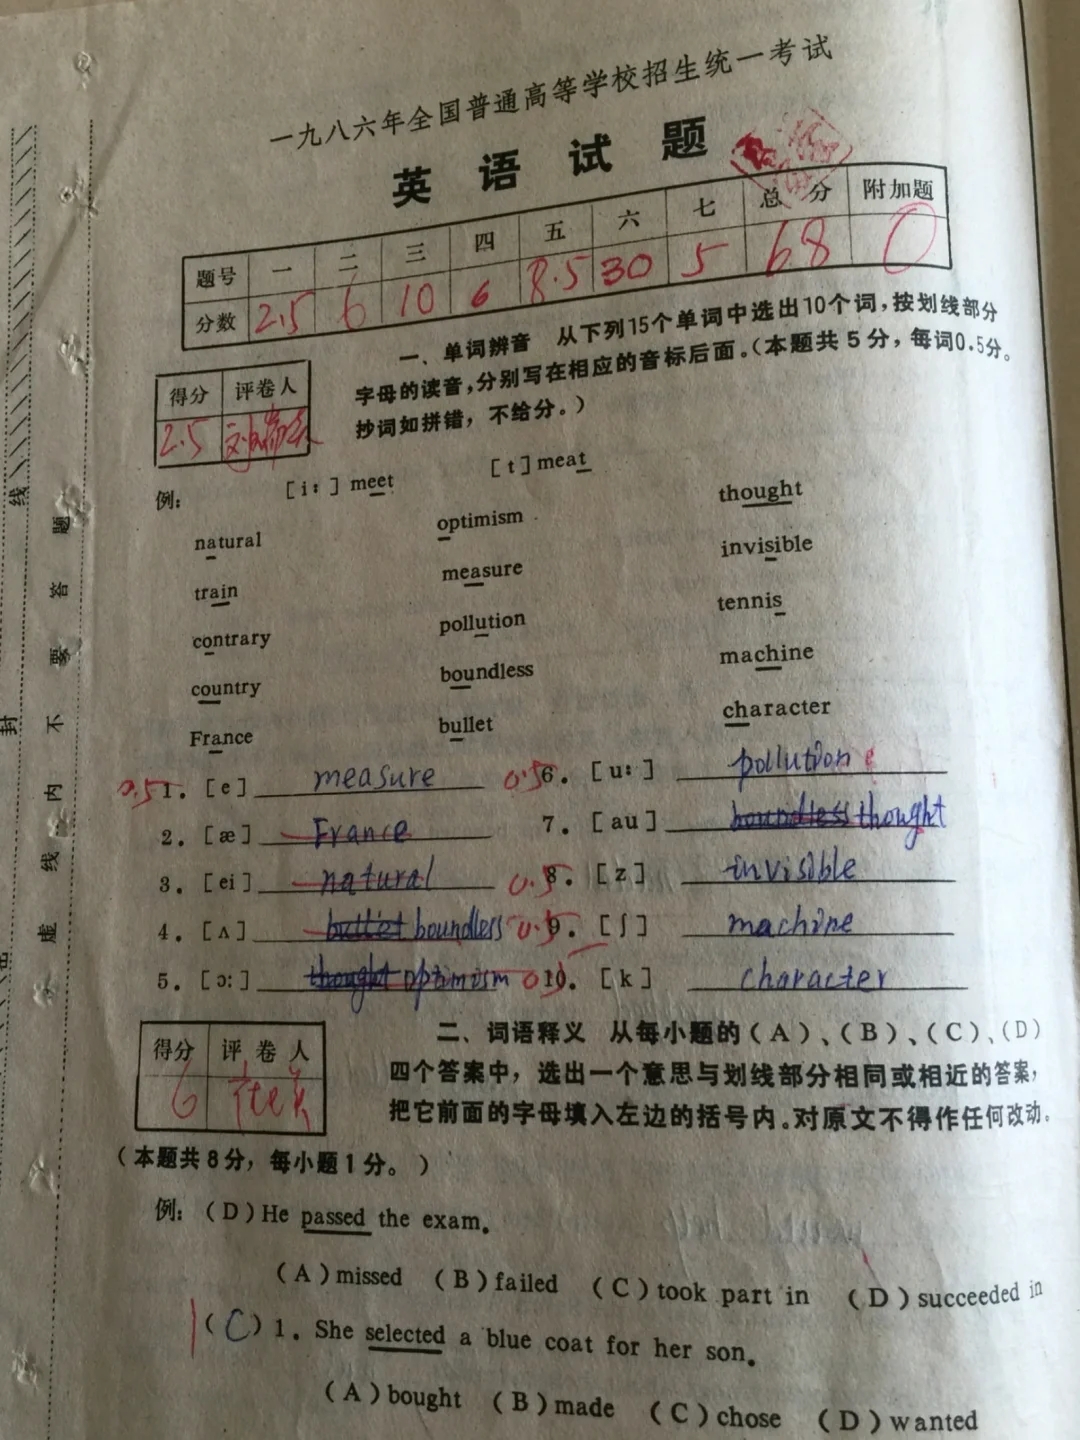 一九八六年全国普通高等学校招生统一考试
英语试题
题号 一 二 三 四 五 六 七 总分 附加题
分数 2.5 6 10 6 8.5 30 5 68 0
一、单词辨音 从下列15个单词中选出10个词，按划线部分
得分 评卷人 字母的读音，分别写在相应的音标后面。（本题共5分，每词0.5分。
2.5 抄词如拼错，不给分。）
例： [i:] meet [t] meat
natural optimism thought
train measure invisible
contrary pollution tennis
country boundless machine
France bullet character
0.5 1. [e] measure 0.5 6. [u:] pollution
2. [æ] France 7. [au] boundless thought
3. [ei] natural 0.5 8. [z] invisible
4. [ʌ] bullet boundless 0.5 9. [ʃ] machine
5. [ɔ:] thought optimism 0.5 10. [k] character
得分 评卷人 二、词语释义 从每小题的（A）、（B）、（C）、（D）
6 四个答案中，选出一个意思与划线部分相同或相近的答案，
把它前面的字母填入左边的括号内。对原文不得作任何改动。
（本题共8分，每小题1分。）
例：（D）He passed the exam.
（A）missed （B）failed （C）took part in （D）succeeded in
（C）1. She selected a blue coat for her son.
（A）bought （B）made （C）chose （D）wanted
题
答
要
不
内
线
虚
线
封